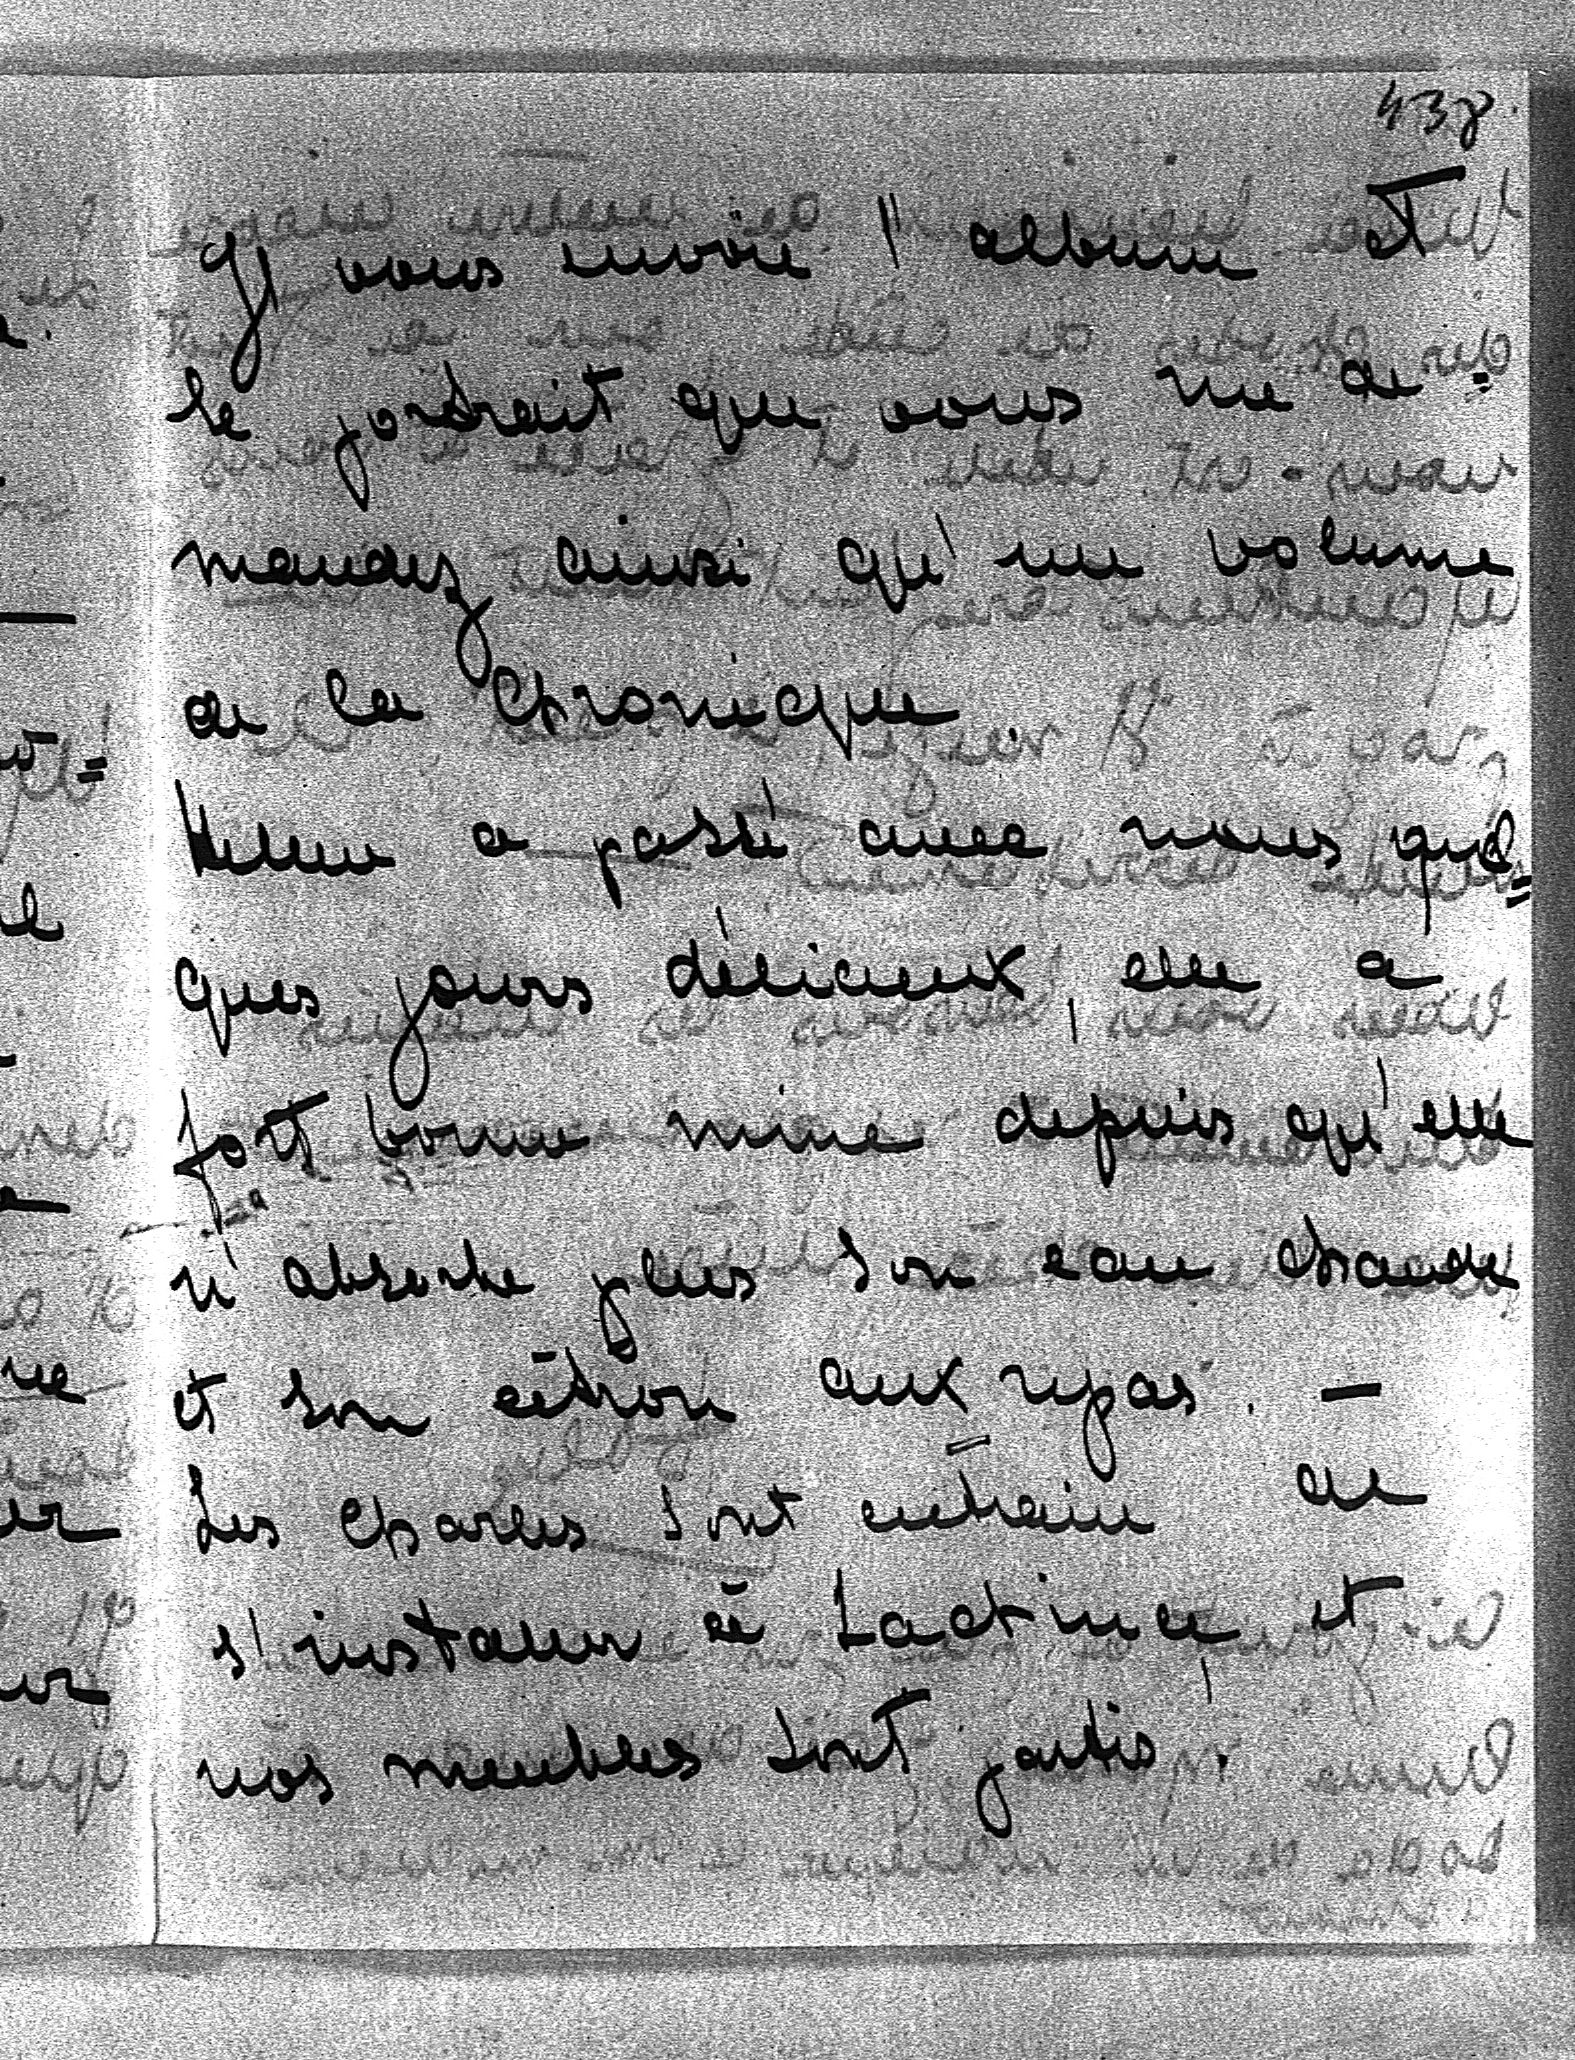 438.
Je vous envoie l'album et
le portrait que vous me de=
mandez ainsi qu'un volume
de la Chronique
Hélène a passé avec nous quel=
ques jours délicieux, elle a
fort bonne mine depuis qu'elle
n'absorbe plus son eau chaude
et son citron aux repas. —
Les Charles sont entrain de
s'installer à et
nos meubles sont partis.